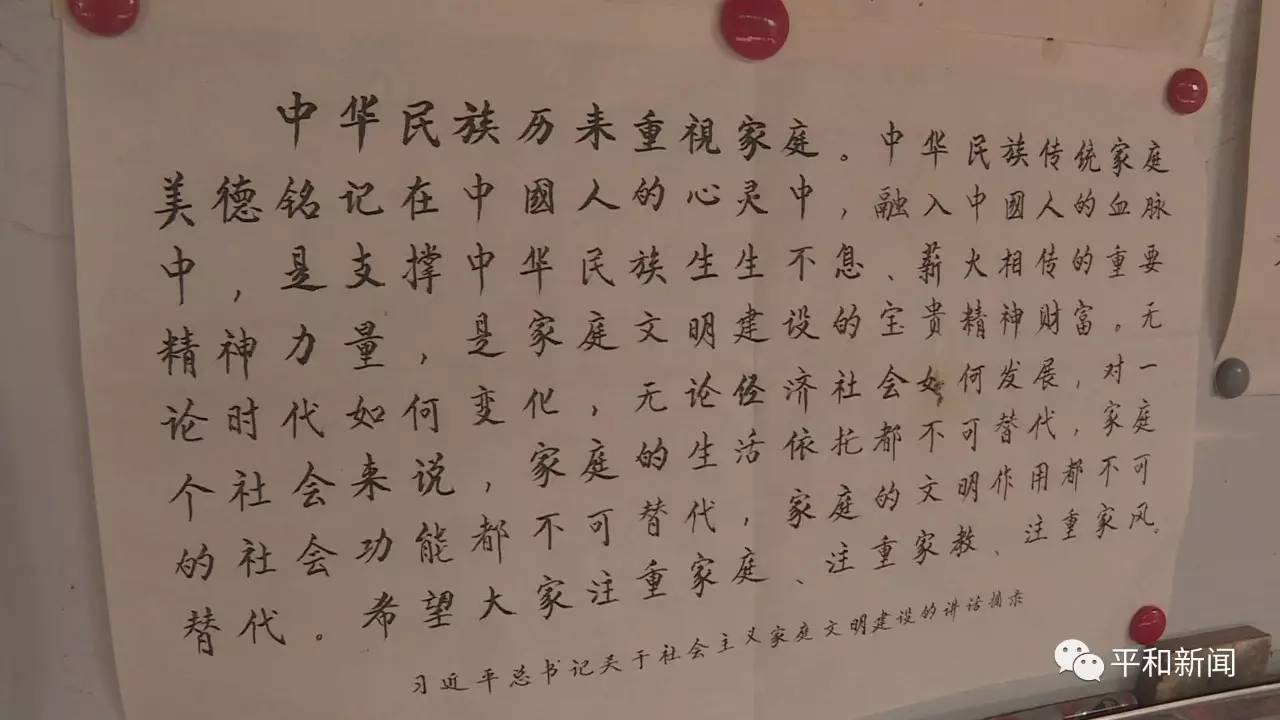 中华民族历来重視家庭。中华民族传统家庭
美德铭记在中國人的心灵中，融入中國人的血脉
中，是支撑中华民族生生不息、薪火相传的重要
精神力量，是家庭文明建设的宝贵精神财富。无
论时代如何变化，无论经济社会如何发展，对一
个社会来说，家庭的生活依托都不可替代，家庭
的社会功能都不可替代，家庭的文明作用都不可
替代。希望大家注重家庭、注重家教、注重家风。
习近平总书记关于社会主义家庭文明建设的讲话摘录
平和新闻